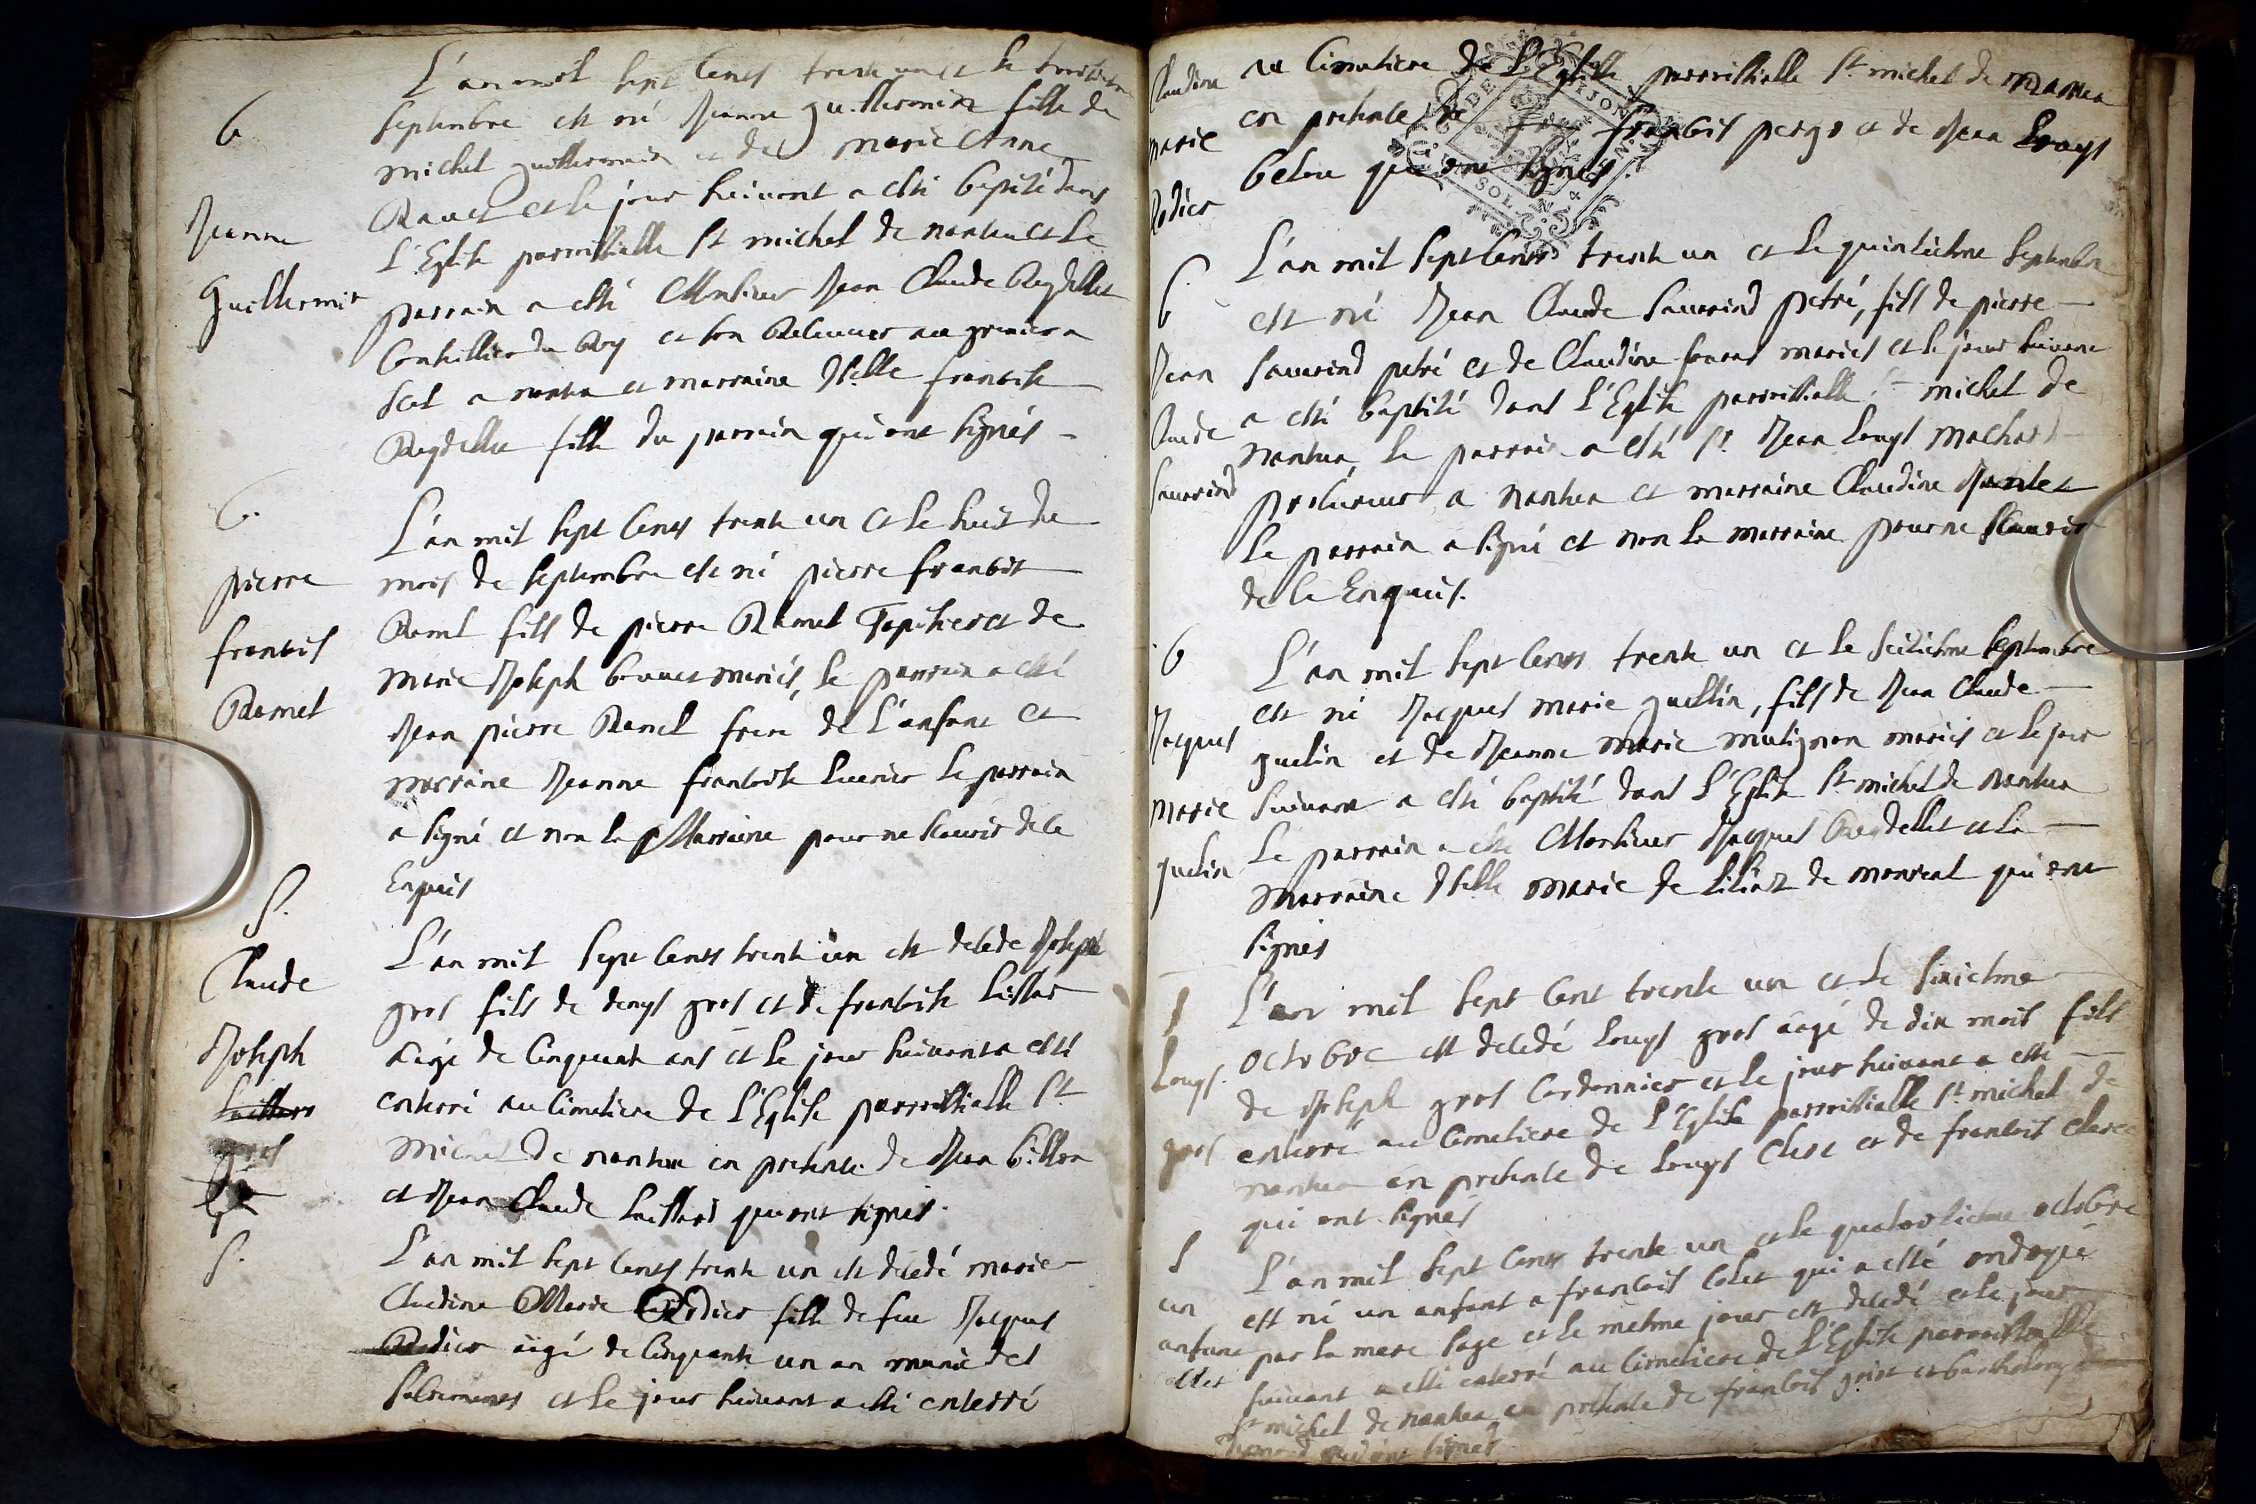 L'an mil sept cents trente un et le troisieme
6
septembre est né Jeanne guillermin fille de
michel guillermin et de marie Anne
Ravet et le jour suivant a esté baptisé dans
Jeanne
L'Eglise parroissialle St michel de nantua et le
Guillermin
parrain a esté Monsieur Jean Claude Reydellet
Conseillier du Roy et son Receveur au grenier a
sel a nantua et marraine Dlle francoise
Reydellet fille du parrain qui ont signés
6.
L'an mil sept cents trente un et le huit du
pierre
mois de septembre est né pierre francois
francois
Ramel fils de pierre Ramel Tapissier et de
Ramel
Marie Joseph bonnet mariés, le parrain a esté
Jean pierre Ramel frere de L'anfant et
marraine Jeanne francoise le parrain
a signé et non la Marraine pour ne scavoir de ce
Enquis
S.
Claude
L'an mil sept cents trente un est decede Joseph
gros fils de denys gros et de francoise
Joseph
aagé de cinquante ans et le jour suivant a esté
enterré au Cimetiere de L'Eglise parroissialle St
gros
Michel de nantua en presence de Jean billon
et Jean Claude qui ont signés.
S.
L'an mil sept cents trente un est decedé marie
Claudine Marie Rodier fille de feu Jacques
Rodier aagé de cinquante un an munie des
sacrements et le jour suivant a esté enterré
Claudine
au Cimetiere de L'Eglise parroissialle St michel de nantua
marie
en presence de francois perge et de Jean Louys
Rodier
qui ont signés.
6
L'an mil sept cents trente un et le quinsieme septembre
est né Jean Claude Sauvrind petré, fils de pierre
Jean
Sauvrind petré et de Claudine mariés et le jour suivant
Claude
a esté baptisé dans L'Eglise parroissialle St michel de
Sauvrind
nantua, le parrain a esté Sr. Jean Louys machard
procureur a nantua et marraine Claudine
le parrain a signé et non la marraine pour ne scavoir
de ce Enquis.
6
L'an mil sept cents trente un et le seisieme septembre
est né Jacques marie guellin, fils de Jean Claude
Jacques
guelin et de Jeanne marie mutignon mariés et le jour
marie
suivant a esté baptisé dans L'Eglise St michel de nantua
guelin
Le parrain a esté Monsieur Jacques Reydellet et la
marraine Dlle marie de de monreal qui ont
signés
S
L'an mil sept cent trente un et le sixiesme
Louys.
octobre est decedé Louys gros aagé de dix mois fils
de Joseph gros Cordonnier et le jour suivant a esté
gros
enterré au Cimetiere de L'Eglise parroissialle St michel de
nantua en presence de Louys Clerc et de francois Clerc
qui ont signés
S
L'an mil sept cents trente un et le quatorsieme octobre
un
est né un anfant a francois Colet qui a esté ondoyé
anfant
par la mere sage et le mesme jour est decedé et le jour
suivant a esté enterré au Cimetiere de L'Eglise parroissialle
St michel de nantua en presence de francois et
qui ont signés